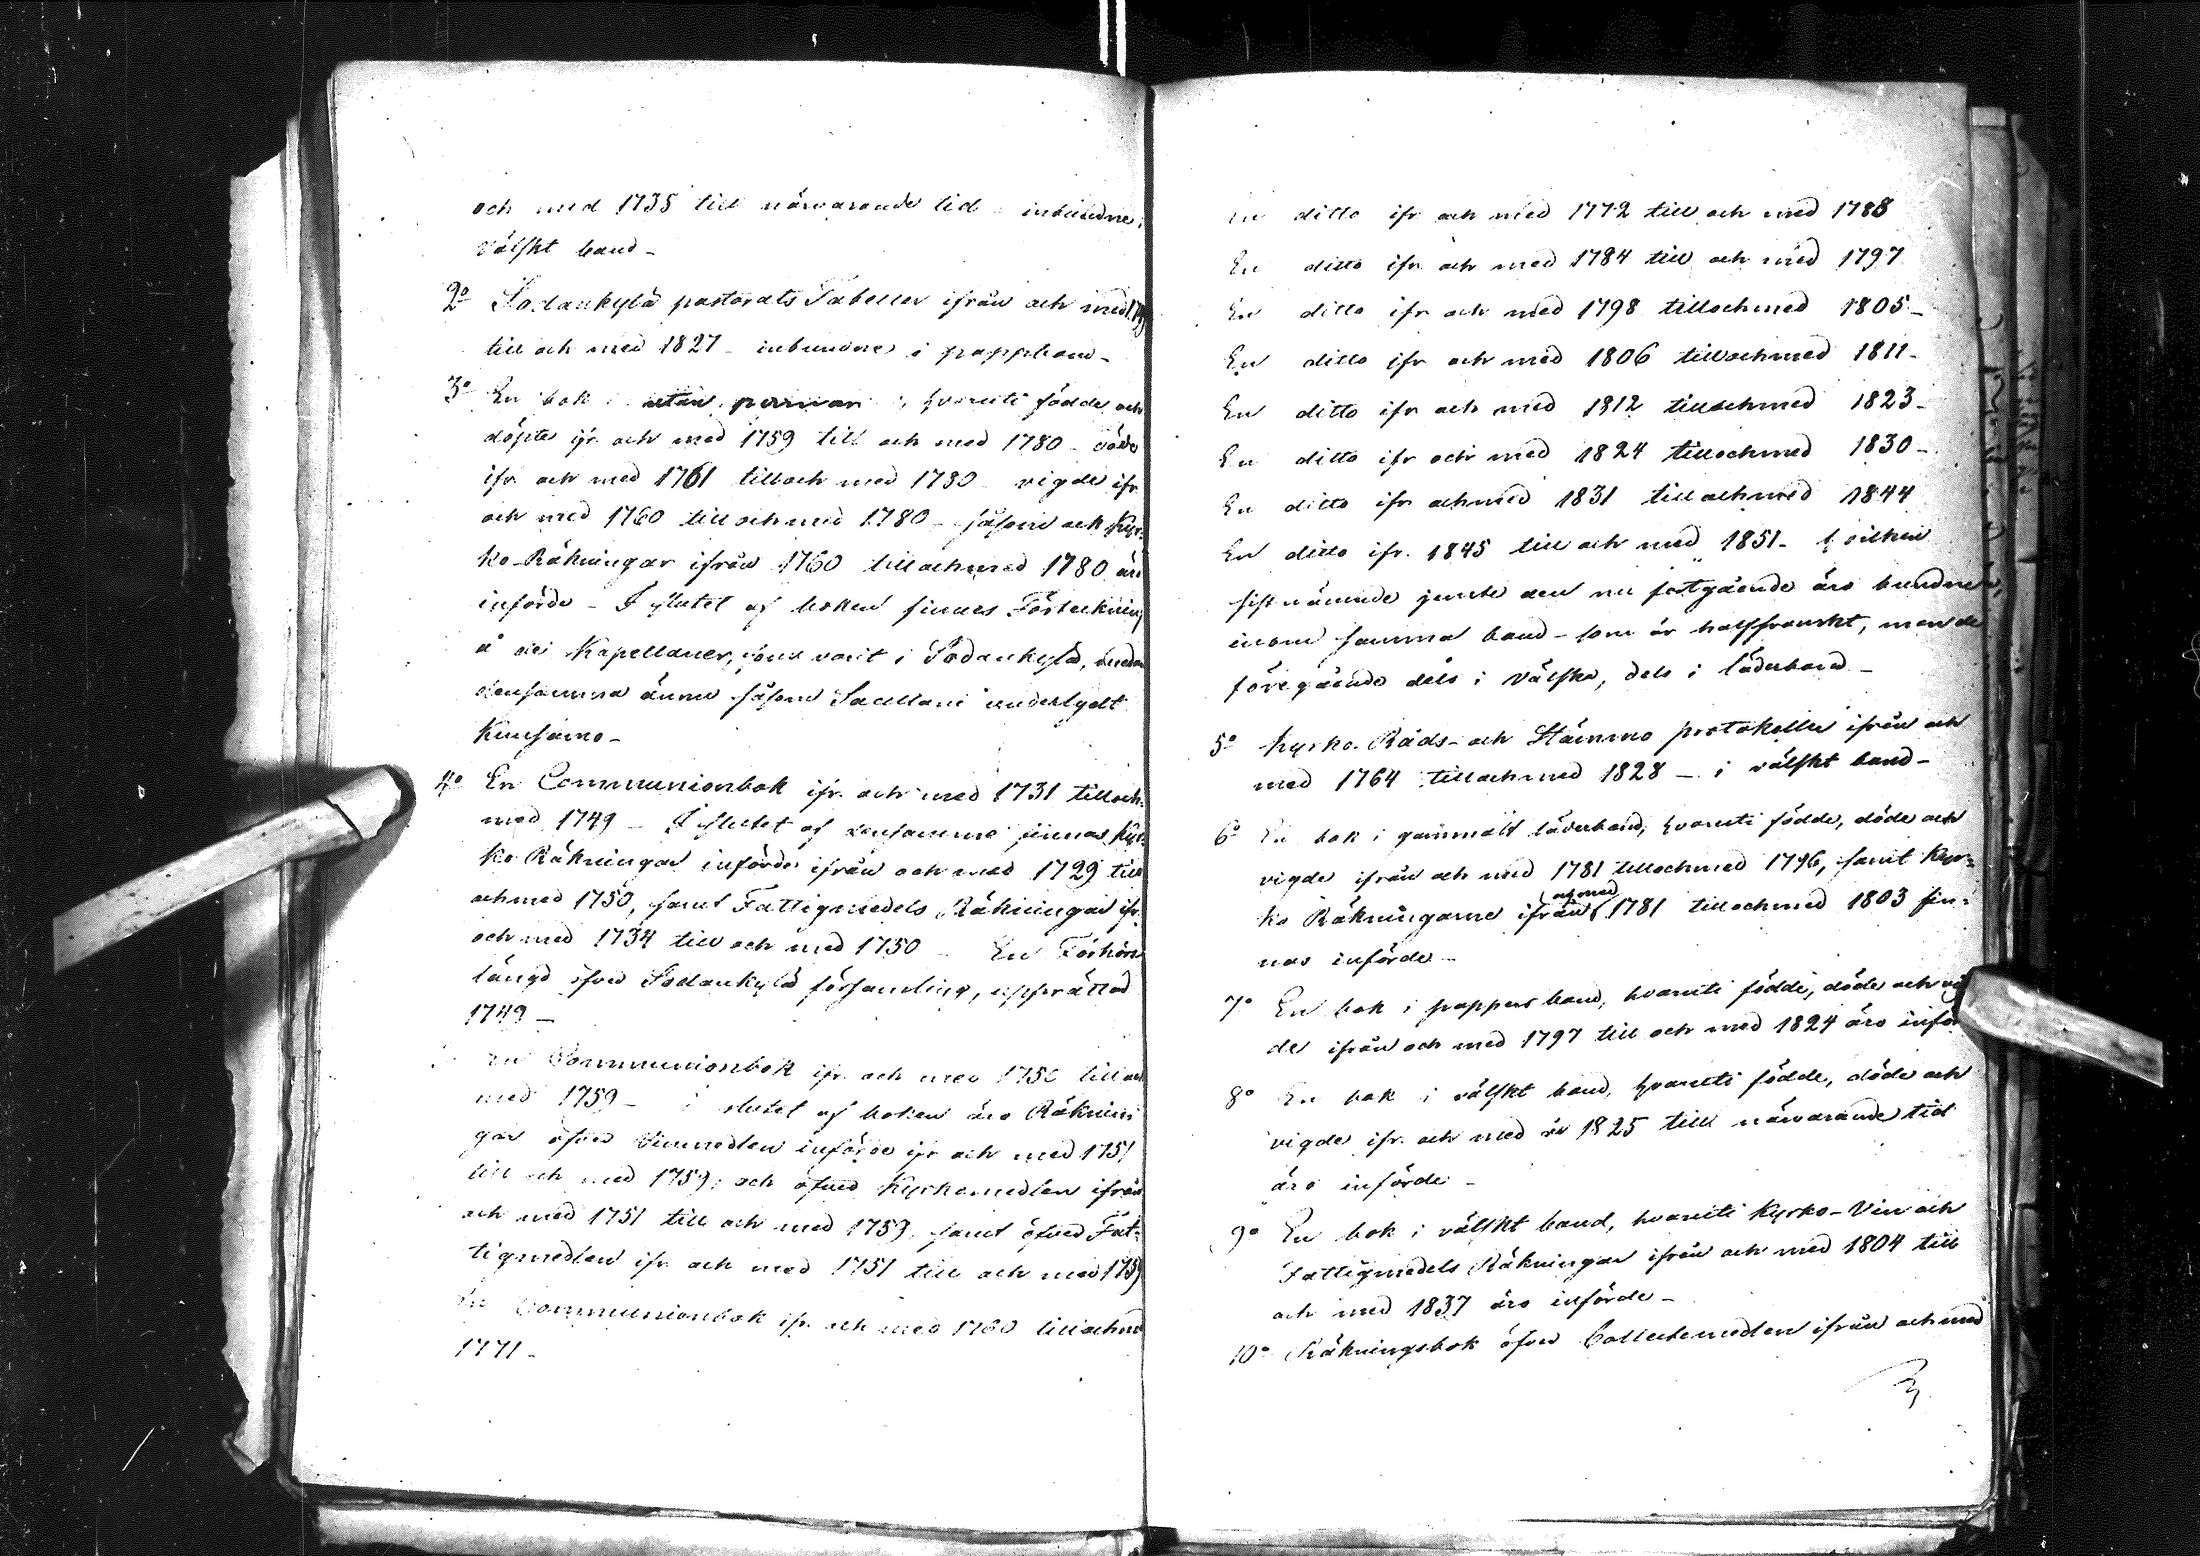 och med 1735 till närvarande tid inbundne,
välskt band -
2o Sodankylä pastorats Tabeller ifrån och med
till och med 1827 - inbundne i pappband -
3o En bok utan permar, hvaruti födde och
döpte ifr. och med 1759 till och med 1780 - döde
ifr. och med 1761 till och med 1780 - vigde ifr.
och med 1760 till och med 1780 - såsom ock Kyr-
ko-Räkningar ifrån 1760 till och med 1780 äro
införde - I slutet af boken finnes Förteckning
å de Kapellaner, som varit i Sodankylä, medan
densamma ännu såsom Sacellani underlydt
Kuusamo -
4o En Communionbok ifr. och med 1731 till och
med 1749 - I slutet af densamma finnas Kyr-
ko Räkningar införde ifrån och med 1729 till
och med 1750, samt Fattigmedels Räkningar ifr.
och med 1734 till och med 1750 - En Förhörs
längd öfver Sodankylä församling, upprättad
1749 -
En Communionbok ifr. och med 1750 till och
med 1759 - i slutet af boken äro Räknin
gar öfver Vinmedlen införde ifr. och med 1751
till och med 1759, och öfver Kyrkomedlen ifrån
och med 1751 till och med 1759, samt öfver Fat-
tigmedlen ifr. och med 1751 till och med 1759
En Communionbok ifr. och med 1760 till och med
1771 -
En ditto ifr. och med 1772 till och med 1788
En ditto ifr. och med 1784 till och med 1797
En ditto ifr. och med 1798 till och med 1805 -
En ditto ifr. och med 1806 till och med 1811 -
En ditto ifr. och med 1812 till och med 1823 -
En ditto ifr. och med 1824 till och med 1830 -
En ditto ifr. och med 1831 till och med 1844
En ditto ifr. 1845 till och med 1851 - hvilken
sistnämnde jemte den nu fortgående äro bundne
inom samma band - som är halffranskt, men de
föregående dels i välska, dels i läderband -
5o Kyrko-Råds- och Stämmo protokoller ifrån och
med 1764 till och med 1828 - i välskt band -
6o En bok i gammalt läderband, hvaruti födde, döde och
vigde ifrån och med 1781 till och med 1796, samt Kyr-
ko Räkningarne ifrån och med 1781 till och med 1803 fin-
nas införde -
7o En bok i pappers band, hvaruti födde, döde och vig
de ifrån och med 1797 till och med 1824 äro införde
8o En bok i välskt band, hvaruti födde, döde och
vigde ifr. och med år 1825 till närvarande tid
äro införde -
9o En bok i välskt band, hvaruti Kyrko-Vin och
Fattigmedels Räkningar ifrån och med 1804 till
och med 1837 äro införde -
10o Räkningsbok öfver Collectemedlen ifrån och med